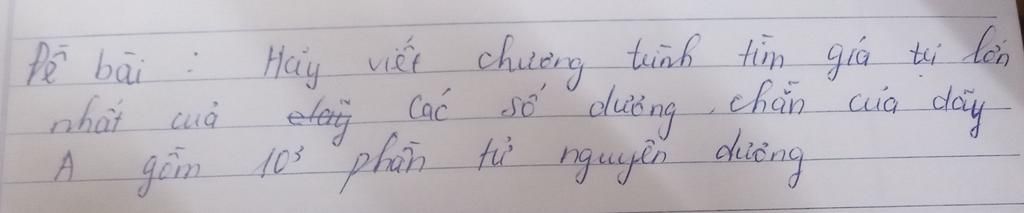 Đề bài : Hãy viết chương trình tìm giá trị lớn
nhất cuả các số dương, chẵn cuả dãy
A gồm 10³ phần tử nguyên dương